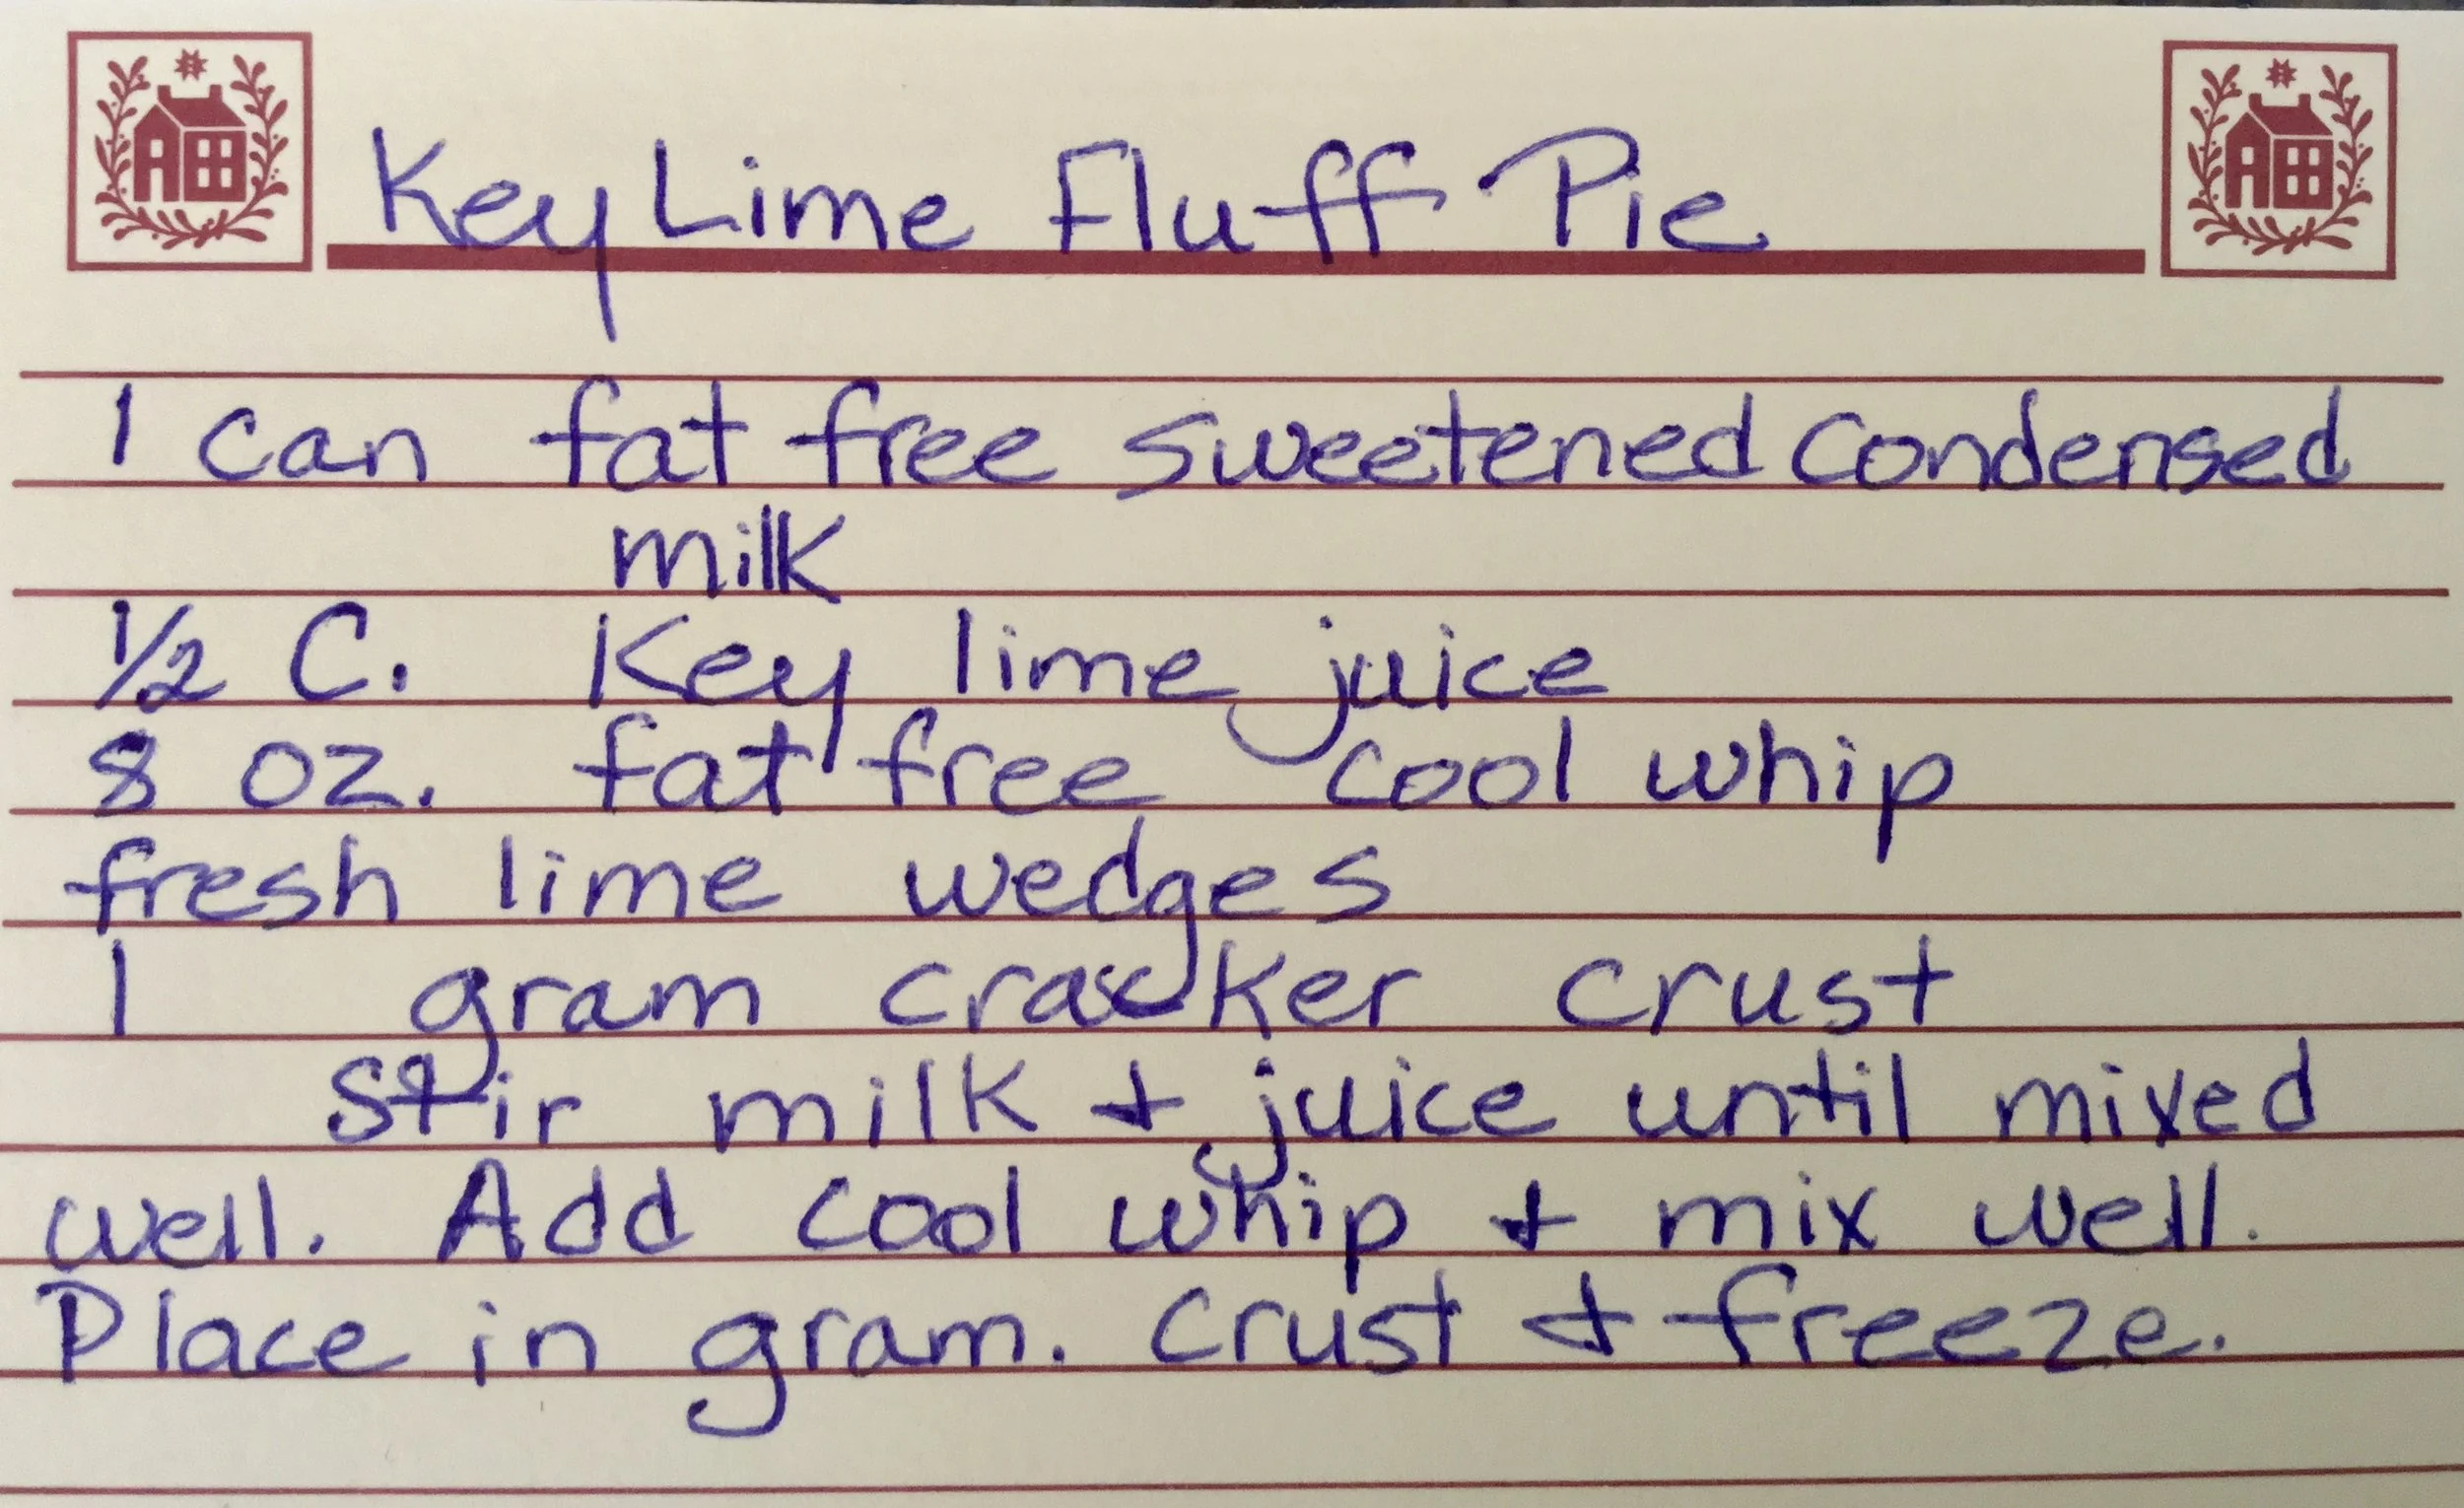 Key Lime Fluff Pie
1 can fat free sweetened condensed
milk
1/2 C. Key lime juice
8 oz. fat free cool whip
fresh lime wedges
1 gram cracker crust
Stir milk + juice until mixed
well. Add cool whip + mix well.
Place in gram. crust + freeze.